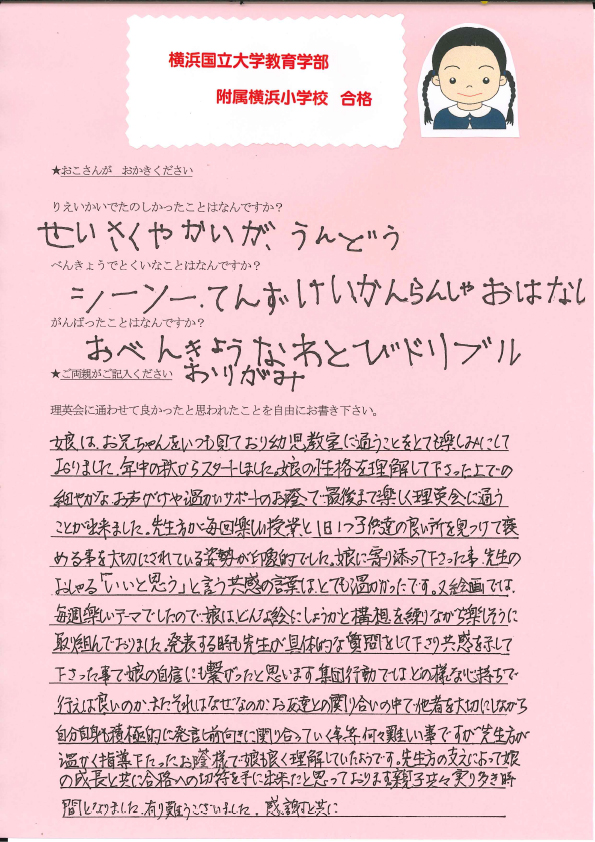 横浜国立大学教育学部
附属横浜小学校 合格
★おこさんが おかきください
りえいかいでたのしかったことはなんですか?
せいさくやかいが、うんどう
べんきょうでとくいなことはなんですか?
シーソー、てんずけいかんらんしゃおはなし
がんばったことはなんですか?
おべんきょうなわとびドリブル
★ご両親がご記入ください
おりがみ
理英会に通わせて良かったと思われたことを自由にお書き下さい。
娘は、お兄ちゃんをいつも見ており幼児教室に通うことをとても楽しみにして
おりました。年中の秋からスタートしました。娘の性格を理解して下さった上での
細やかなお声がけや温かいサポートのお蔭で最後まで楽しく理英会に通う
ことが出来ました。先生方が毎回楽しい授業、と1日1つ子供達の良い所を見つけて褒
める事を大切にされている姿勢が印象的でした。娘に寄り添って下さった事、先生の
おっしゃる「いいと思う」と言う共感の言葉は、とても温かかったです。又絵画では、
毎週楽しいテーマでしたので娘は、どんな絵にしようかと構想を練りながら楽しそうに
取り組んでおりました。発表する時も先生が具体的な質問をして下さり共感を示して
下さった事で娘の自信にも繋がったと思います。集団行動ではどの様な心持ちで
行えば良いのか、またそれはなぜなのか、お友達との関り合いの中で他者を大切にしながら
自分自身も積極的に発言し前向きに関り合っていく事等、何々難しい事ですが先生方が
温かく指導下さったお蔭様で娘も良く理解していたようです。先生方の支えによって娘
の成長と共に合格への切符を手に出来たと思っております。親子共々実り多き時
間となりました。有り難うございました。感謝と共に